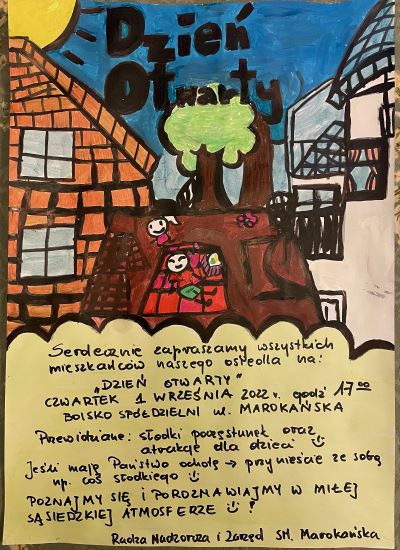 Dzień
Otwarty
Serdecznie zapraszamy wszystkich
mieszkańców naszego osiedla na:
"DZIEŃ OTWARTY"
CZWARTEK 1 WRZEŚNIA 2022 r. godz 17 00
BOISKO SPÓŁDZIELNI ul. MAROKAŃSKA
Przewidziane: słodki poczęstunek oraz
atrakcje dla dzieci
Jeśli mają Państwo ochotę → przynieście ze sobą
np. coś słodkiego
POZNAJMY SIĘ I POROZMAWIAJMY W MIŁEJ
SĄSIEDZKIEJ ATMOSFERZE !
Rada Nadzorcza i Zarząd SM. Marokańska